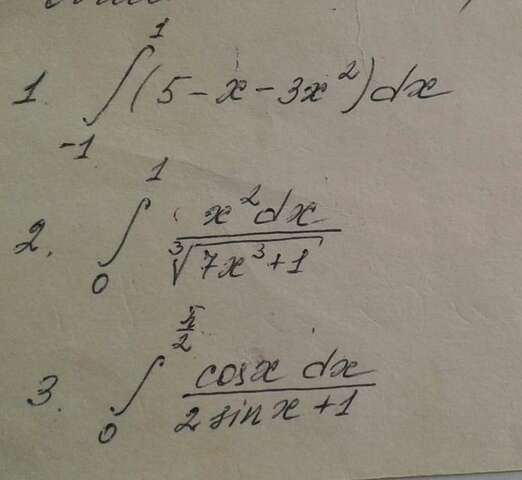 1. ∫₋₁¹ (5 - x - 3x²) dx
2. ∫₀¹ x² dx / ∛(7x³ + 1)
3. ∫₀^(π/2) cosx dx / (2 sin x + 1)